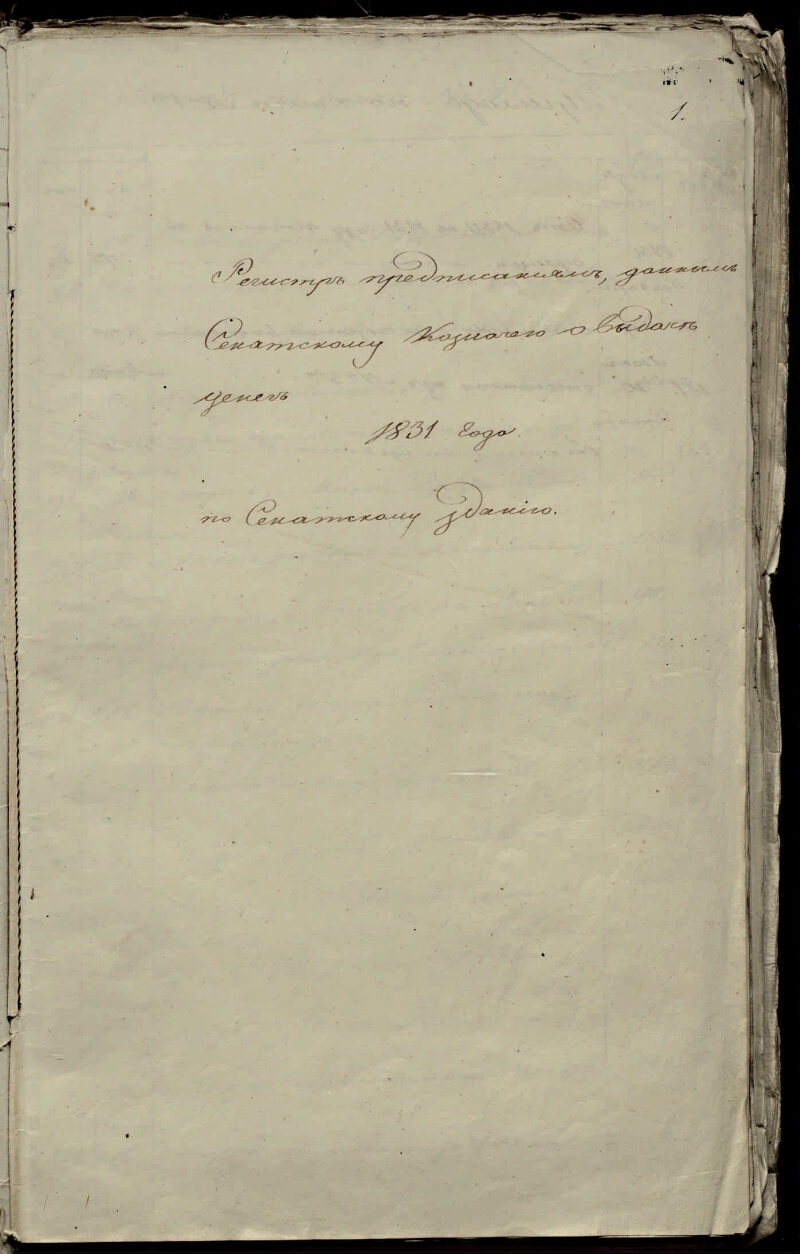 1.
Регистръ предписаніямъ, даннымъ
Сенатскому Козначею о выдачѣ
денегъ
1831 года.
по Сенатскому зданію.